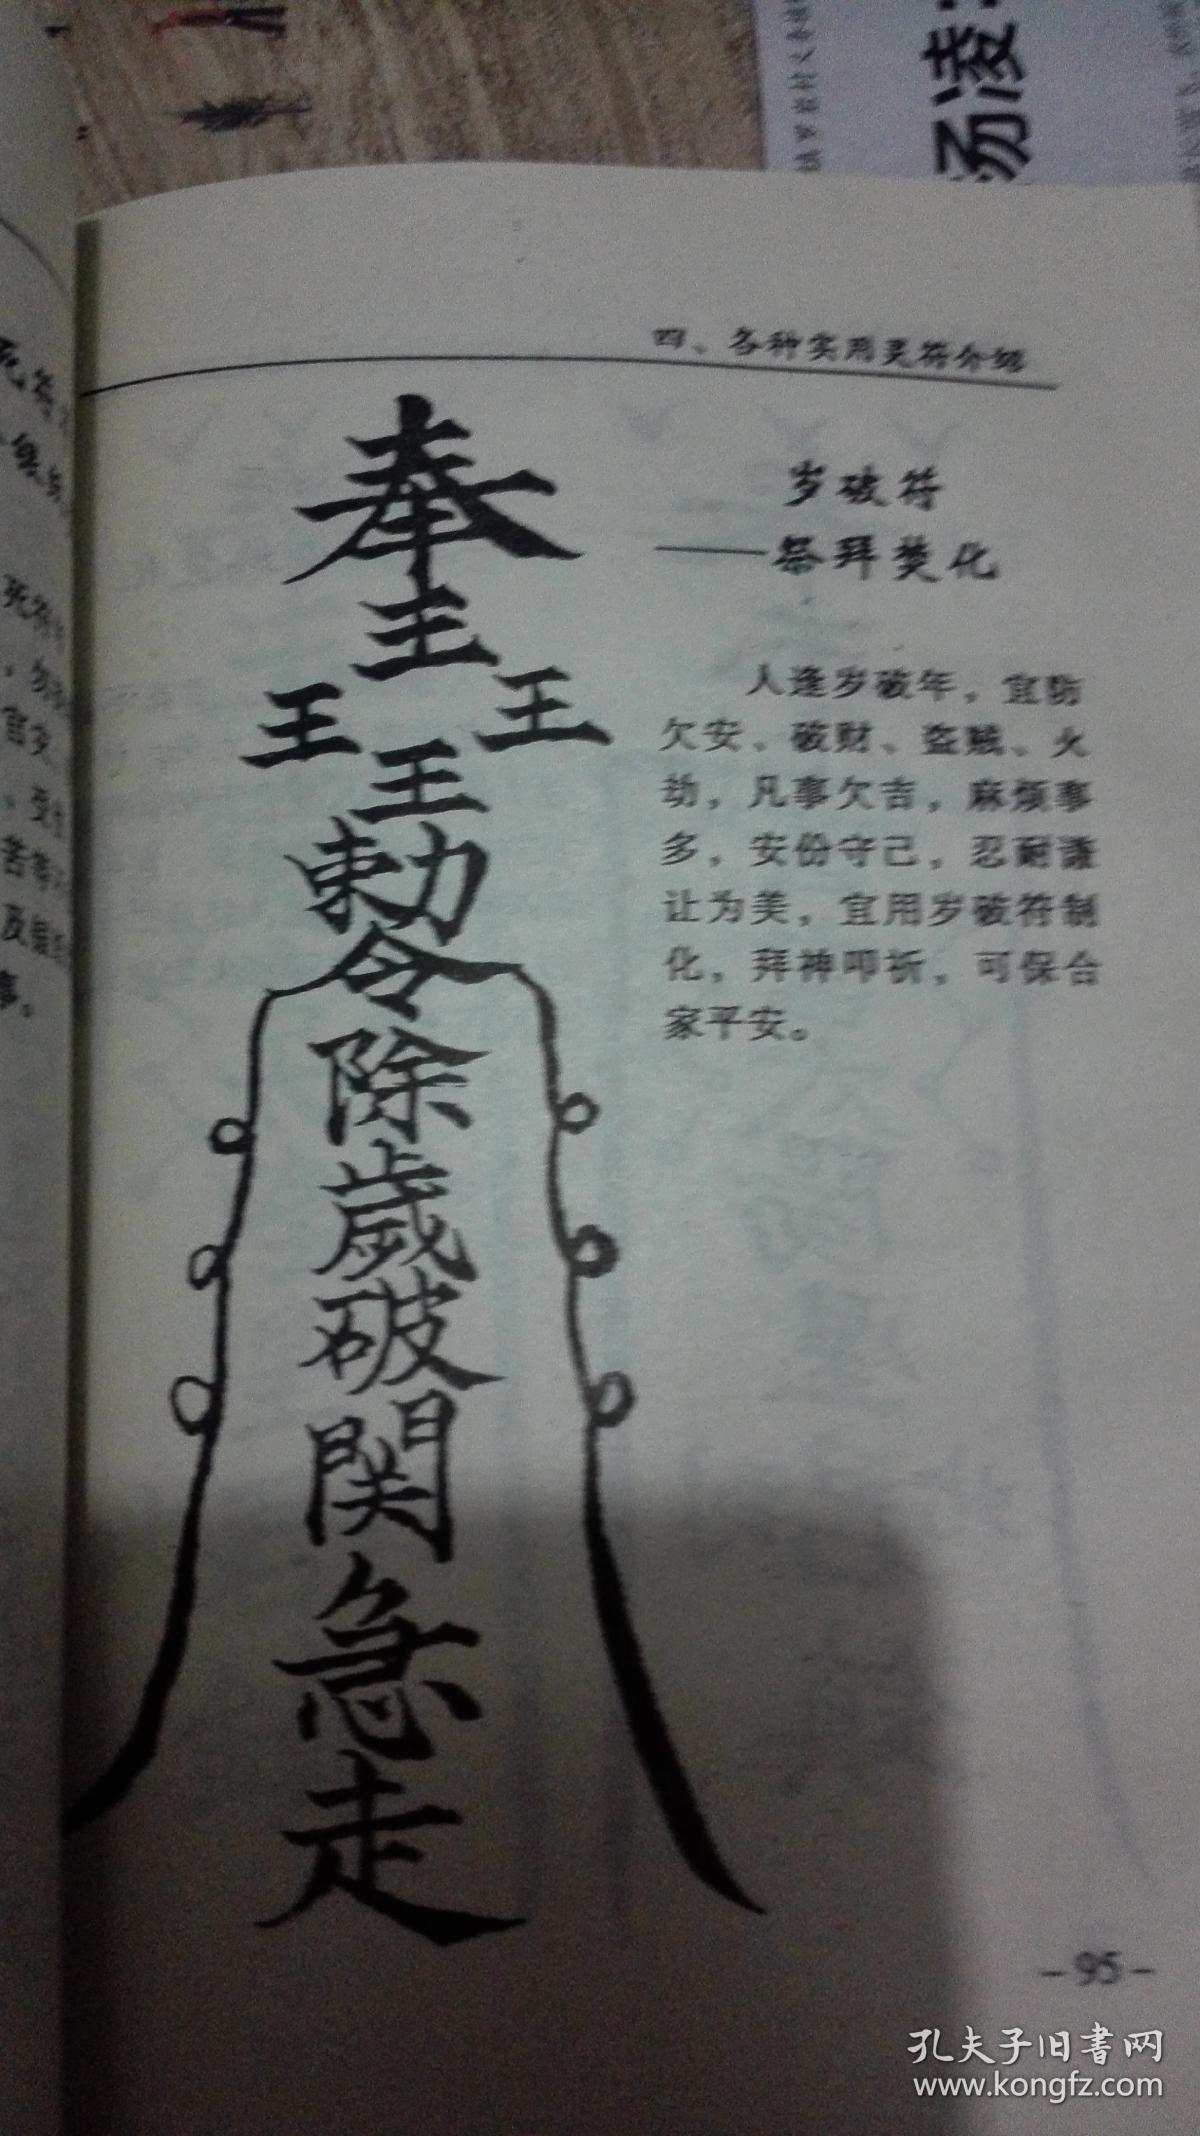 杨凌
四、各种实用灵符介绍
岁破符
——祭拜焚化
人逢岁破年，宜防
欠安、破财、盗贼、火
劫，凡事欠吉，麻烦事
多，安份守己，忍耐谦
让为美，宜用岁破符制
化，拜神叩祈，可保合
家平安。
奉
王
王 王
王
勅
令
除
歲
破
関
急
走
死符
死符
官灾
，受
苦等
及
事。
-95-
孔夫子旧书网
www.kongfz.com